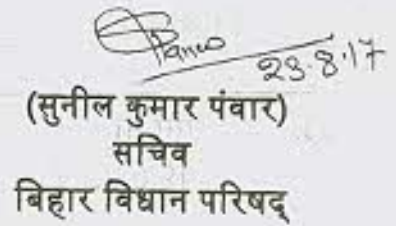 23.8.17
(सुनील कुमार पंवार)
सचिव
बिहार विधान परिषद्